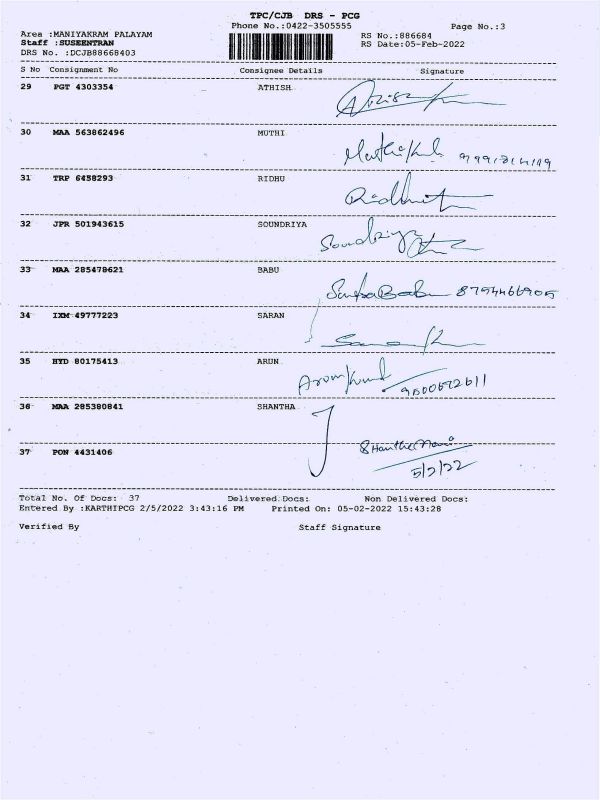 TPC/CJB DRS - PCG
Phone No.:0422-3505555 Page No.:3
Area :MANIYAKRAM PALAYAM RS No.:886684
Staff :SUSEENTRAN RS Date:05-Feb-2022
DRS No. :DCJB88668403
S No Consignment No Consignee Details Signature
29 PGT 4303354 ATHISH
30 MAA 563862496 MUTHI
31 TRP 6458293 RIDHU
32 JPR 501943615 SOUNDRIYA
Soundriya
33 MAA 285478621 BABU
Babu
34 IXM 49777223 SARAN
35 HYD 80175413 ARUN
Arunkumar
36 MAA 285380841 SHANTHA
37 PON 4431406
5/2/22
Total No. Of Docs: 37 Delivered Docs: Non Delivered Docs:
Entered By :KARTHIPCG 2/5/2022 3:43:16 PM Printed On: 05-02-2022 15:43:28
Verified By Staff Signature